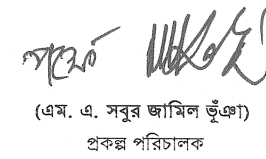 পক্ষে
(এম. এ. সবুর জামিল ভূঁঞা)
প্রকল্প পরিচালক